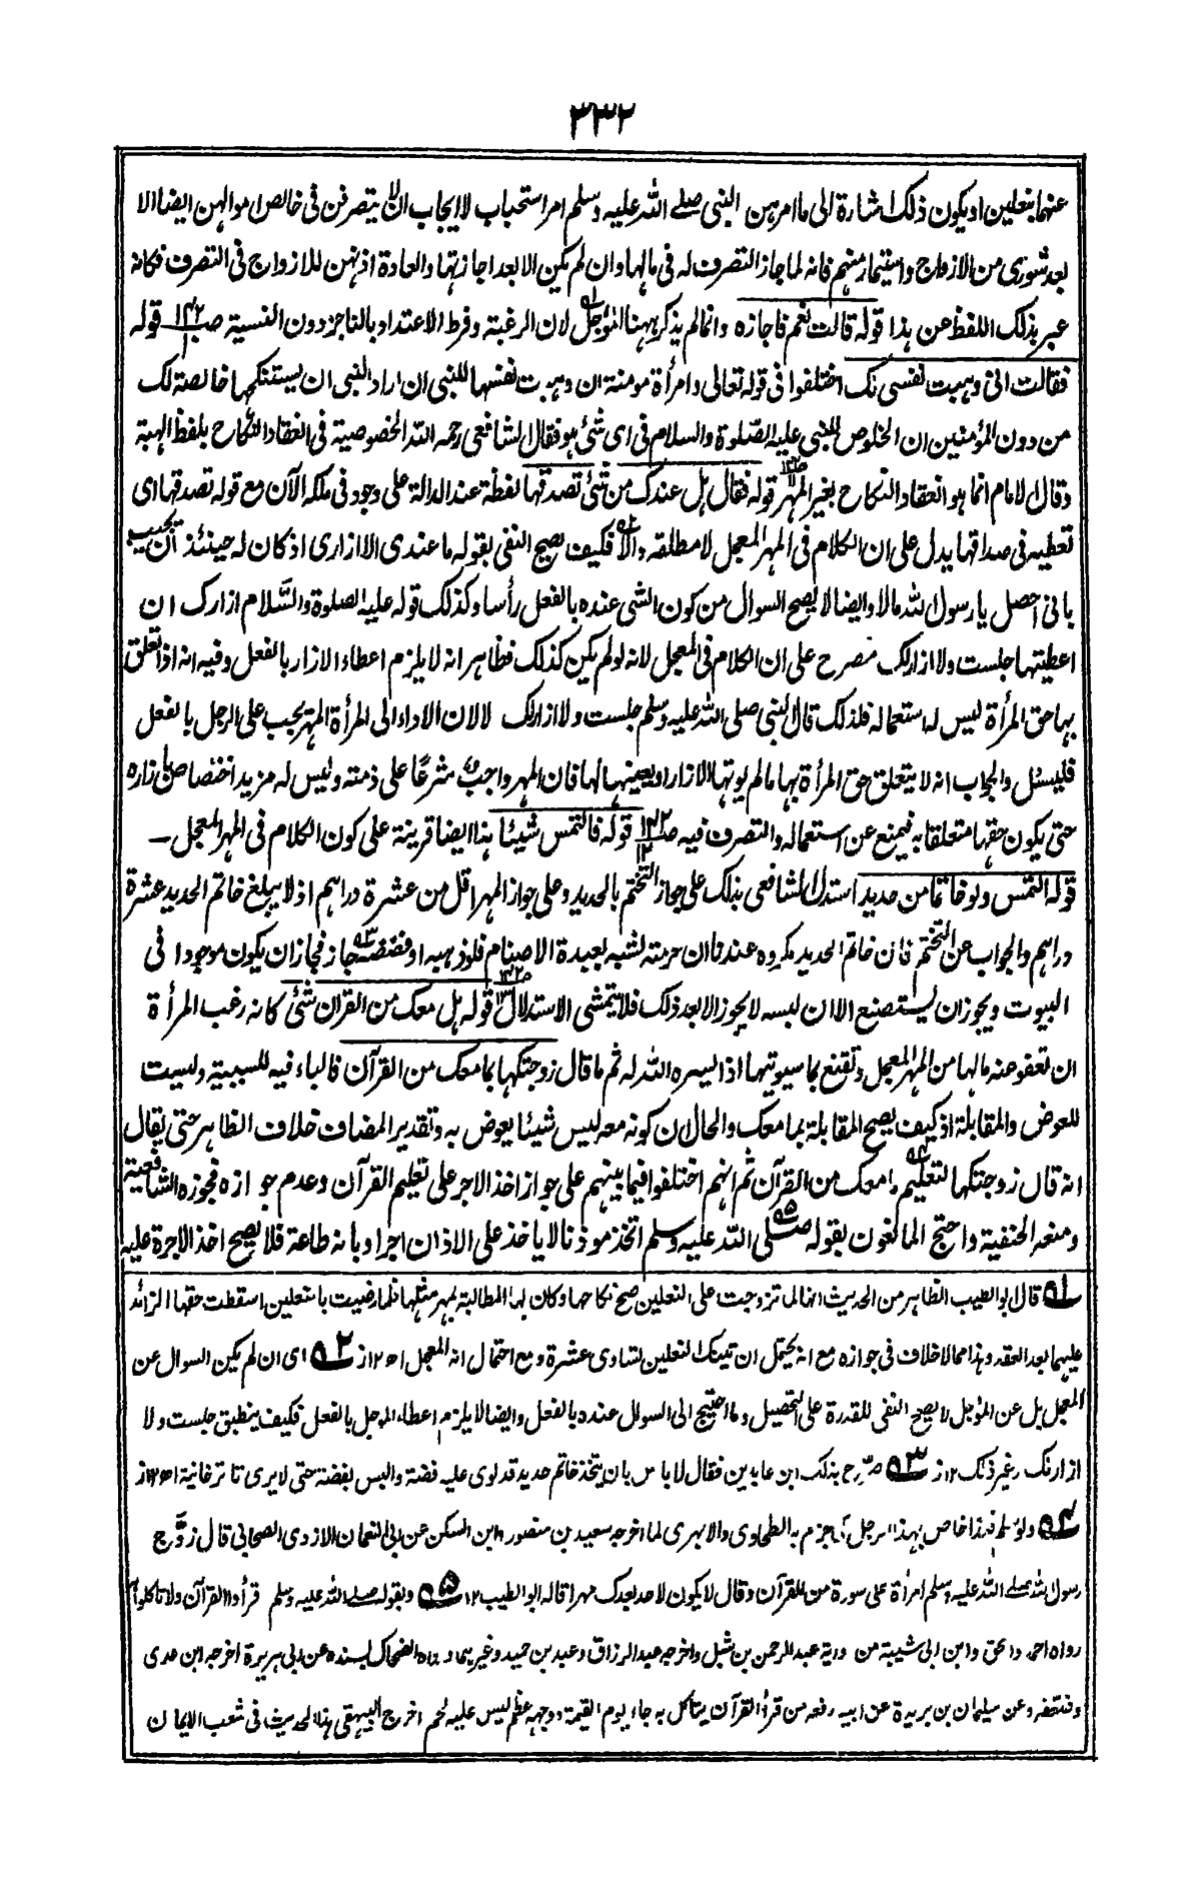 ٣٣٢
عنهما بنعلين او يكون ذلك اشارة الى ما امرهن النبى صلے اللہ عليه وسلم امر استحباب لا ايجاب ان لا يتصرفن فى خالص اموالهن ايضا الا
بعد شورى من الازواج واستيمار منهم فانه لما جاز التصرف له فى مالها وان لم يكن الا بعد اجازتها والعادة اذنهن للازواج فى التصرف فكانه
عبر بذلك اللفظ عن هذا قوله قالت نعم فاجازه وانما لم يذكر ههنا المؤجل لان الرغبة وفرط الاعتداد بالناجز دون النسية صـ١٣٢ قوله
فقالت انى وهبت نفسى لك اختلفوا فى قوله تعالى وامرأة مومنة ان وهبت نفسها للنبى ان اراد النبى ان يستنكحها خالصة لك
من دون المؤمنين ان الخلوص للنبى عليه الصلوة والسلام فى اى شئ هو فقال الشافعى رحمه اللہ الخصوصية فى انعقاد النكاح بلفظ الهبة
وقال الامام انما هو انعقاد النكاح بغير المهر قوله فقال هل عندك من شئ تصدقها لفظة عند الدالة على وجود فى ملكه الآن مع قوله تصدقها اى
تعطيه فى صداقها يدل على ان الكلام فى المهر المعجل لا مطلقه والا فكيف يصح النفى بقوله ما عندى الا ازارى اذ كان له حينئذ ان يجيب
بانى احصل يا رسول اللہ مالا وايضا لا يصح السوال من كون الشى عنده بالفعل رأسا وكذلك قوله عليه الصلوة والسلام ازارك ان
اعطيتها جلست ولا ازار لك مصرح على ان الكلام فى المعجل لانه لو لم يكن كذلك فظاهر انه لا يلزم اعطاء الازار بالفعل وفيه انه اذا تعلق
بها حق المرأة ليس له استعماله فلذلك قال النبى صلى اللہ عليه وسلم جلست ولا ازار لك لا لان الاداء الى المرأة المهر يجب على الرجل بالفعل
فليسئل والجواب انه لا يتعلق حق المرأة بها ما لم يوتها الازار او يعينها لها فان المهر واجب شرعًا على ذمته وليس له مزيد اختصاص بازاره
حتى يكون حقها متعلقا به فيمنع عن استعماله والتصرف فيه صـ١٣٢ قوله فالتمس شيئا هذا ايضا قرينة على كون الكلام فى المهر المعجل ـ
قوله التمس ولو خاتما من حديد استدل الشافعى بذلك على جواز التختم بالحديد وعلى جواز المهر اقل من عشرة دراهم اذ لا يبلغ خاتم الحديد عشرة
دراهم والجواب عن التختم فان خاتم الحديد مكروه عندنا ان حرمته لشبه بعبدة الاصنام فلو ذهبه او فضضه جاز فجاز ان يكون موجودا فى
البيوت ويجوز ان يستصنع الا ان لبسه لا يجوز الا بعد ذلك فلا يتمشى الاستدلال قوله هل معك من القران شئ كانه رغب المرأة
ان تعفو عنه مالها من المهر المعجل وتقنع بما سيوتيها اذا ايسره اللہ له ثم ما قال زوجتكها بما معك من القرآن فالباء فيه للسببية وليست
للعوض والمقابلة اذ كيف يصح المقابلة بما معك والحال ان كونه معه ليس شيئا يعوض به وتقدير المضاف خلاف الظاهر حتى يقال
انه قال زوجتكها لتعليم ما معك من القرآن ثم انهم اختلفوا فيما بينهم على جواز اخذ الاجر على تعليم القرآن وعدم جوازه فجوزه الشافعية
ومنعه الحنفية واحتج المانعون بقوله صلى اللہ عليه وسلم اتخذ موذنا لا ياخذ على الاذان اجرا وبانه طاعة فلا يصح اخذ الاجرة عليه
ف١ قال ابو الطيب الظاهر من الحديث انها لما تزوجت على النعلين صح نكاحها وكان لها المطالبة بمهر مثلها فلما رضيت بالنعلين اسقطت حقها الزائد
عليهما بعد العقد وهذا مما لا خلاف فى جوازه مع انه يحتمل ان تينك النعلين تساوى عشرة ومع احتمال انه المعجل اھ ١٢ز ف٢ اى ان لم يكن السوال عن
المعجل بل عن المؤجل لا يصح النفى للقدرة على التحصيل وما احتيج الى السوال عنده بالفعل وايضا لا يلزم اعطاء المؤجل بالفعل فكيف ينطبق جلست ولا
ازار لك وغير ذلك ١٢ز ف٣ صرح بذلك ابن عابدين فقال لا باس بان يتخذ خاتم حديد قد لوى عليه فضة والبس بفضة حتى لا يرى تاترخانية اھ ١٢ز
ف٤ ولو سلم فهذا خاص بهذا الرجل كما جزم به الطحاوى والابهرى لما اخرجه سعيد بن منصور وابن السكن عن ابى النعمان الازدى الصحابى قال زوَّج
رسول اللہ صلے اللہ عليه وسلم امرأة على سورة من القرآن وقال لا يكون لاحد بعدك مهرا قاله ابو الطيب ١٢ ف٥ وبقوله صلے اللہ عليه وسلم قرأوا القرآن ولا تاكلوا به
رواه احمد واسحق وابن ابى شيبة من رواية عبد الرحمن بن شبل واخرجه عبد الرزاق وعبد بن حميد وغيرهما ورواه الضحاك بسنده عن ابى هريرة اخرجه ابن عدى
وضعفه وعن سليمان بن بريدة عن ابيه رفعه من قرأ القرآن يتأكل به جاء يوم القيمة ووجهه عظم ليس عليه لحم اخرج البيهقى هذا الحديث فى شعب الايمان